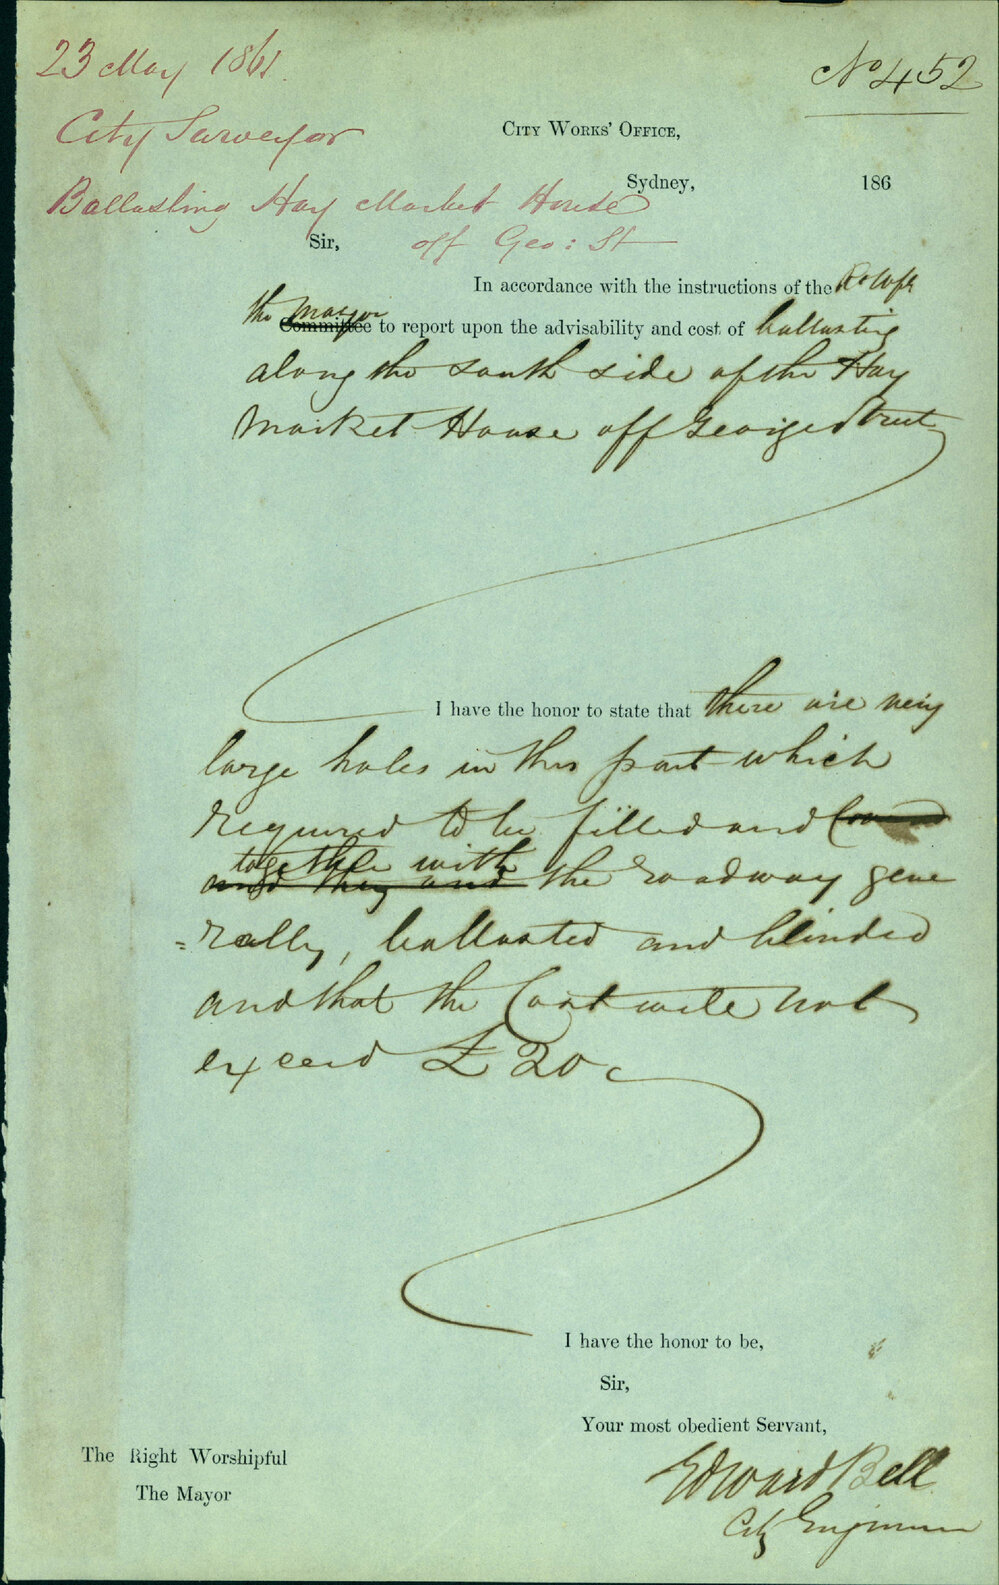 23 May 1861
No 452
City Surveyor
CITY WORKS' OFFICE,
Sydney, 186
Ballasting Hay Market House
off Geo: St
Sir,
In accordance with the instructions of the Rt Wpfl
the Mayor
Committee to report upon the advisability and cost of ballasting
along the south side of the Hay
Market House off George Street
I have the honor to state that there are very
large holes in this part which
required to be filled and
together with
and they and the roadway gene
=rally, ballasted and blinded
and that the Cost will not
exceed £20
I have the honor to be,
Sir,
Your most obedient Servant,
Edward Bell
City Engineer
The Right Worshipful
The Mayor